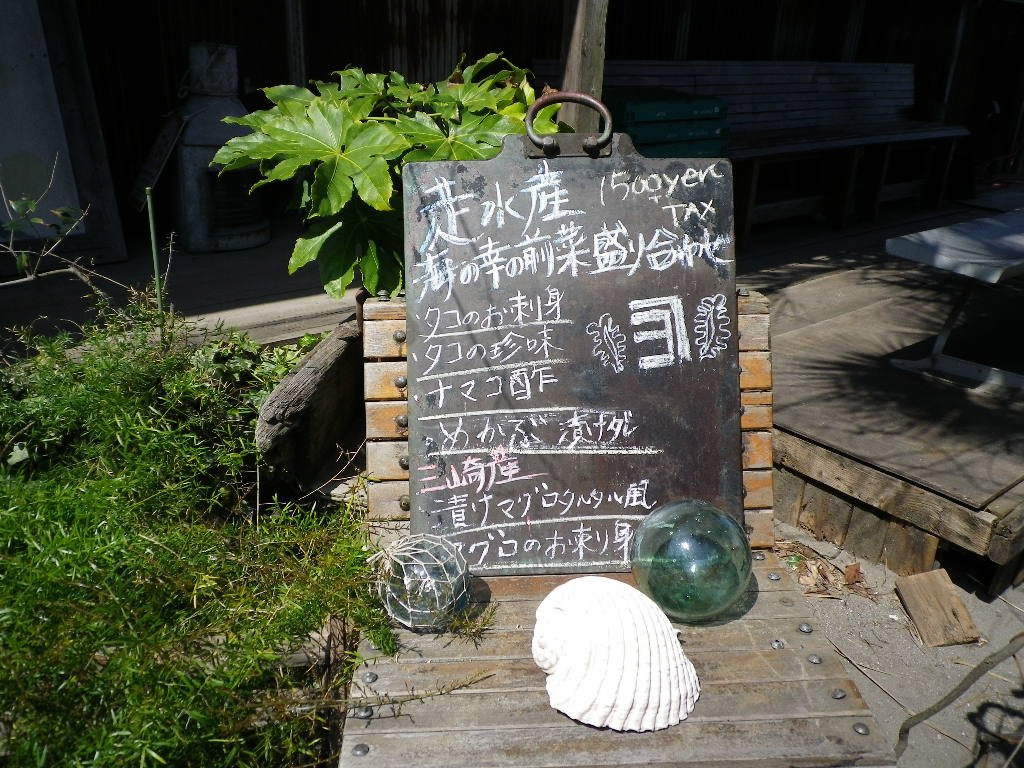 走水産 1500yen
+
TAX
海の幸の前菜盛り合わせ
・タコのお刺身
・タコの珍味
・ナマコ酢
・めかぶ漬ケダレ
三崎産
漬けマグロタルタル風
マグロのお刺り身